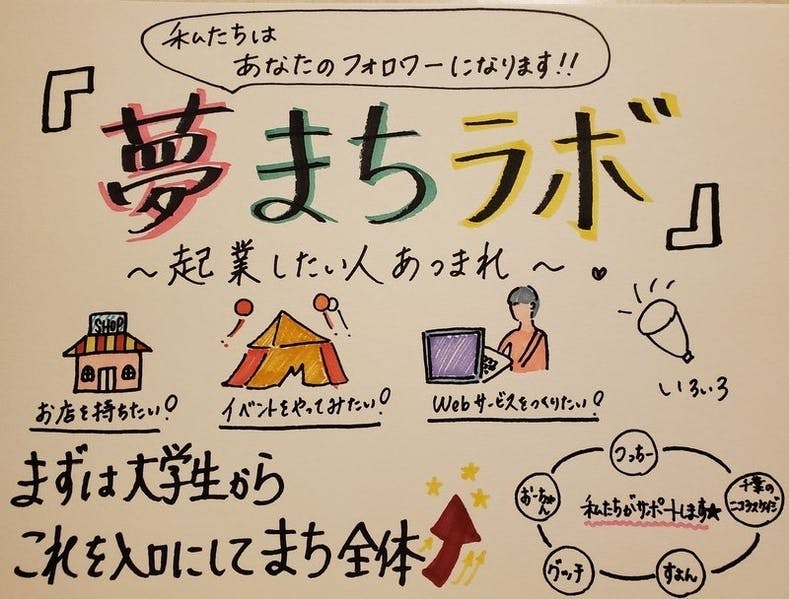 私たちは
あなたのフォロワーになります!!
『夢まちラボ』
〜起業したい人あつまれ〜
SHOP
お店を持ちたい!
イベントをやってみたい!
Webサービスをつくりたい!
いろいろ
まずは大学生から
これを入口にしてまち全体
つっちー
おーちゃん
私たちがサポートします★
千葉の
ニコラスケイジ
グッチ
すよん